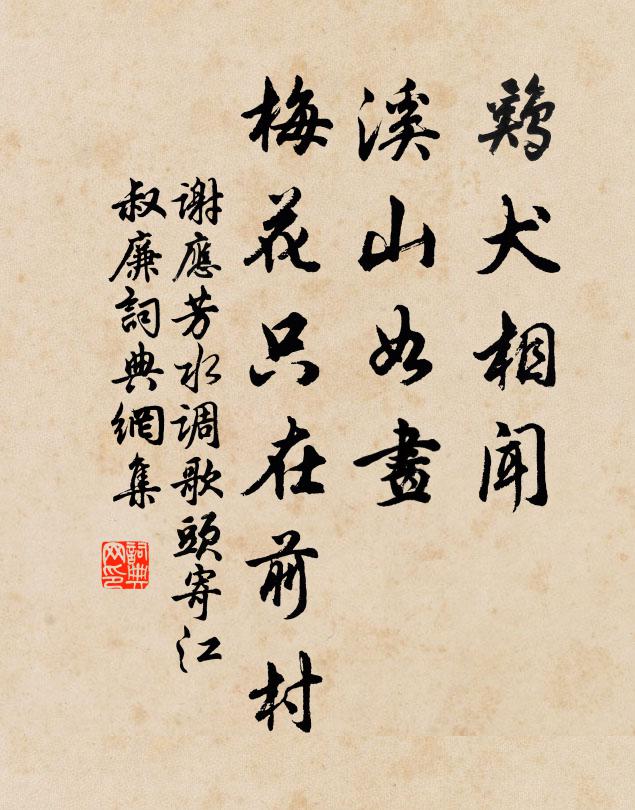 鷄犬相聞
溪山如畫
梅花只在前村
謝應芳水調歌頭寄江
叔廉詞典網集
詞典网印